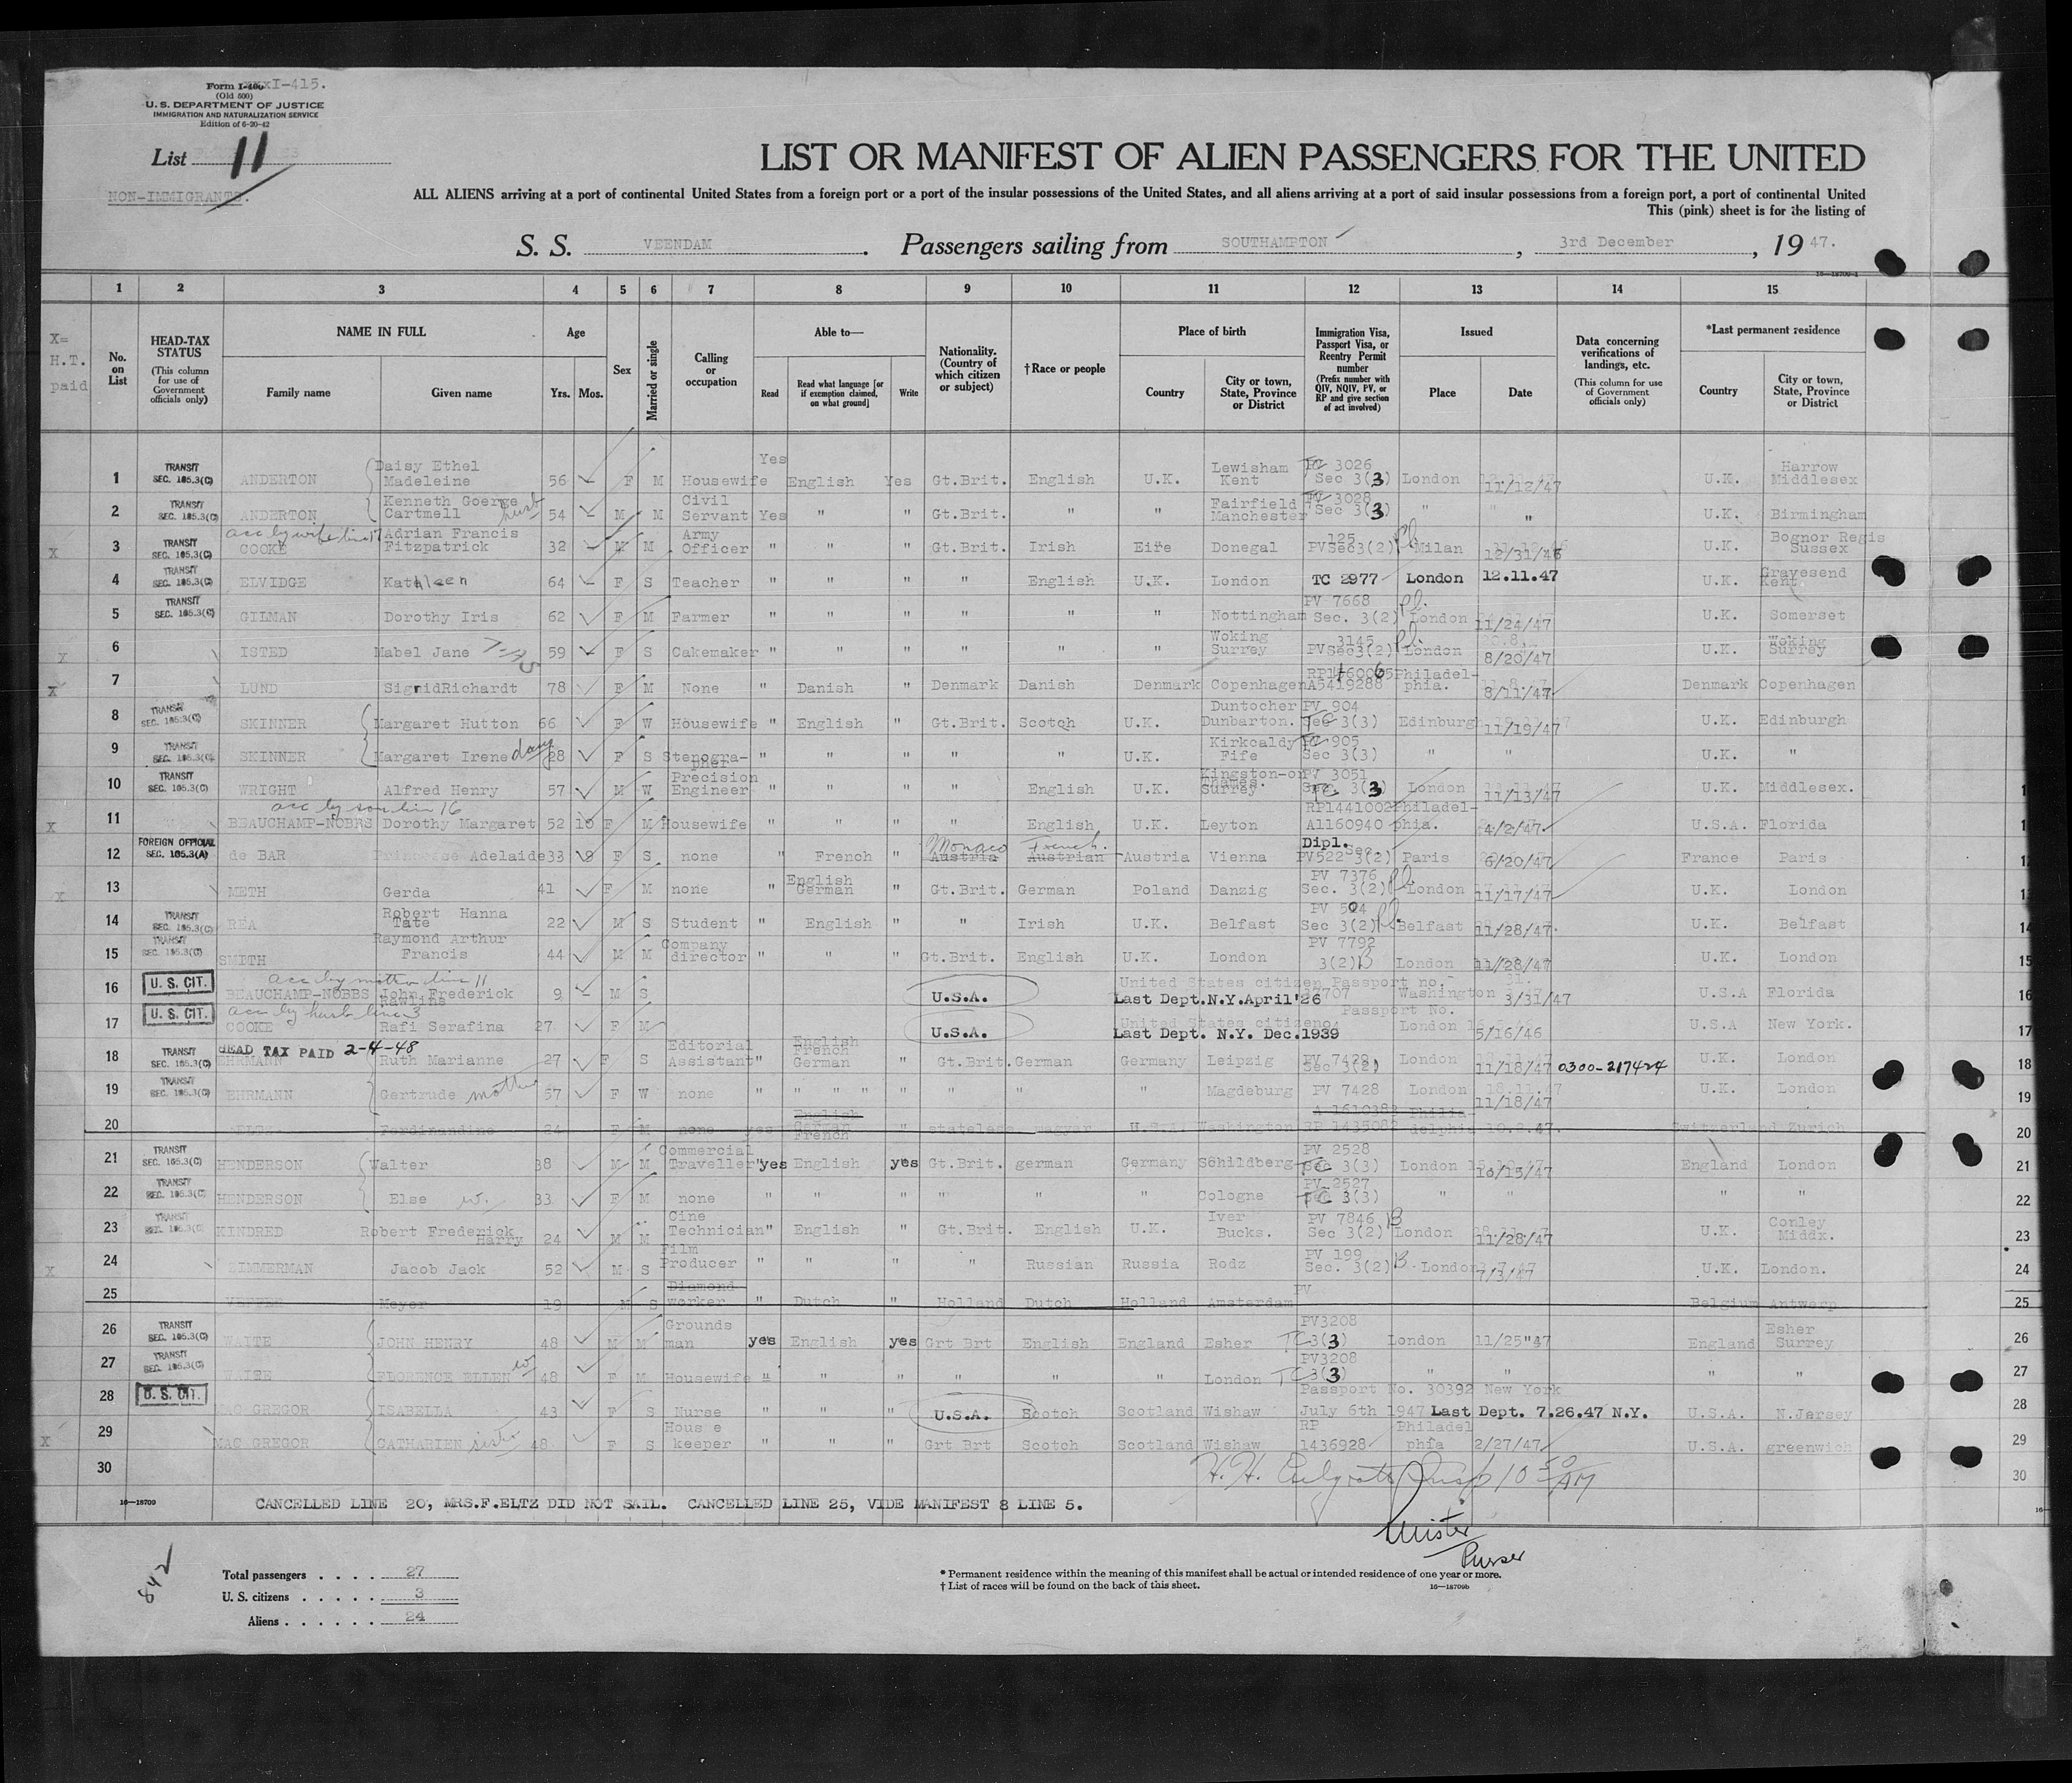 Form I-415.
(Old 500)
U. S. DEPARTMENT OF JUSTICE
IMMIGRATION AND NATURALIZATION SERVICE
Edition of 6-20-42
List 11
NON-IMMIGRANTS.
LIST OR MANIFEST OF ALIEN PASSENGERS FOR THE UNITED
ALL ALIENS arriving at a port of continental United States from a foreign port or a port of the insular possessions of the United States, and all aliens arriving at a port of said insular possessions from a foreign port, a port of continental United
This (pink) sheet is for the listing of
S. S. VEENDAM. Passengers sailing from SOUTHAMPTON, 3rd December, 1947.
16—18709-1
1 2 3 4 5 6 7 8 9 10 11 12 13 14 15
X= H.T. paid
No. on List
HEAD-TAX STATUS (This column for use of Government officials only)
NAME IN FULL Family name Given name
Age Yrs. Mos.
Sex
Married or single
Calling or occupation
Able to— Read Read what language [or if exemption claimed, on what ground] Write
Nationality. (Country of which citizen or subject)
†Race or people
Place of birth Country City or town, State, Province or District
Immigration Visa, Passport Visa, or Reentry Permit number (Prefix number with QIV, NQIV, PV, or RP and give section of act involved)
Issued Place Date
Data concerning verifications of landings, etc. (This column for use of Government officials only)
*Last permanent residence Country City or town, State, Province or District
1 TRANSIT SEC. 105.3(C) ANDERTON Daisy Ethel Madeleine 56 F M Housewife Yes English Yes Gt.Brit. English U.K. Lewisham Kent TC 3026 Sec 3(3) London 11/12/47 U.K. Harrow Middlesex
2 TRANSIT SEC. 105.3(C) ANDERTON Kenneth Goerge Cartmell husb 54 M M Civil Servant Yes " " Gt.Brit. " " Fairfield Manchester PV 3028 Sec 3(3) " " U.K. Birmingham
acc by wife line 17
X 3 TRANSIT SEC. 105.3(C) COOKE Adrian Francis Fitzpatrick 32 M M Army Officer " " " Gt.Brit. Irish Eire Donegal 125 PVSec3(2) Milan 12/31/46 U.K. Bognor Regis Sussex
4 TRANSIT SEC. 105.3(C) ELVIDGE Kathleen 64 F S Teacher " " " " English U.K. London TC 2977 London 12.11.47 U.K. Gravesend Kent
5 TRANSIT SEC. 105.3(C) GILMAN Dorothy Iris 62 F M Farmer " " " " " " Nottingham PV 7668 Sec. 3(2) London 11/24/47 U.K. Somerset
X 6 ISTED Mabel Jane 59 F S Cakemaker " " " " " " Woking Surrey 3145 PVSec3(2) London 8/20/47 U.K. Woking Surrey
X 7 LUND SigridRichardt 78 F M None " Danish " Denmark Danish Denmark Copenhagen A5419288 Philadelphia. 8/11/47 Denmark Copenhagen
8 TRANSIT SEC. 105.3(C) SKINNER Margaret Hutton 66 F W Housewife " English " Gt.Brit. Scotch U.K. Duntocher Dunbarton. PV 904 Sec 3(3) Edinburgh 11/19/47 U.K. Edinburgh
9 TRANSIT SEC. 105.3(C) SKINNER Margaret Irene 28 F S Stenographer " " " " " U.K. Kirkcaldy Fife 905 Sec 3(3) " " U.K. "
10 TRANSIT SEC. 105.3(C) WRIGHT Alfred Henry 57 M W Precision Engineer " " " " English U.K. Kingston-on Thames. Surrey PV 3051 3(3) London 11/13/47 U.K. Middlesex.
acc by son line 16
X 11 BEAUCHAMP-NOBBS Dorothy Margaret 52 10 F M Housewife " " " " English U.K. Leyton RP1441002 A1160940 Philadelphia. 4/2/47 U.S.A. Florida
12 FOREIGN OFFICIAL SEC. 105.3(A) de BAR Princesse Adelaide 33 9 F S none " French " Monaco Austria French. Austrian Austria Vienna Dipl. PV522 Sec. 3(2) Paris 6/20/47 France Paris
X 13 METH Gerda 41 F M none " English German " Gt.Brit. German Poland Danzig PV 7376 Sec. 3(2) London 11/17/47 U.K. London
14 TRANSIT SEC. 105.3(C) REA Robert Hanna Tate 22 M S Student " English " " Irish U.K. Belfast PV 504 Sec 3(2) Belfast 11/28/47 U.K. Belfast
15 TRANSIT SEC. 105.3(C) SMITH Raymond Arthur Francis 44 M M Company director " " " Gt.Brit. English U.K. London PV 7792 3(2) London 11/28/47 U.K. London
acc by mother line 11
16 U. S. CIT. BEAUCHAMP-NOBBS John Frederick Rawlins 9 M S U.S.A. United States citizen Passport no. Last Dept.N.Y.April'26 Washington 3/31/47 U.S.A Florida
acc by husb line 3
17 U. S. CIT. COOKE Rafi Serafina 27 F M U.S.A. United States citizen Passport No. Last Dept. N.Y. Dec.1939 London 5/16/46 U.S.A New York.
HEAD TAX PAID 2-4-48
18 TRANSIT SEC. 105.3(C) EHRMANN Ruth Marianne 27 F S Editorial Assistant " English French German " Gt.Brit. German Germany Leipzig PV 7429 Sec 3(2) London 11/18/47 0300-217424 U.K. London
19 TRANSIT SEC. 105.3(C) EHRMANN Gertrude mother 57 F W none " " " " " " " " Magdeburg PV 7428 London 11/18/47 U.K. London
20 ELTZ Ferdinandine 24 F M none yes English German French " stateless magyar U.S.A. Washington A 1610382 RP 1435082 Philadelphia 10.2.47. Switzerland Zurich
21 TRANSIT SEC. 105.3(C) HENDERSON Walter 38 M M Commercial Traveller yes English yes Gt.Brit. german Germany Schildberg PV 2528 3(3) London 10/15/47 England London
22 TRANSIT SEC. 105.3(C) HENDERSON Else w. 33 F M none " " " " " " Cologne PV 2527 TC 3(3) " " " "
23 TRANSIT SEC. 105.3(C) KINDRED Robert Frederick Harry 24 M M Cine Technician " English " Gt.Brit. English U.K. Iver Bucks. PV 7846 Sec 3(2) London 11/28/47 U.K. Conley Middx.
X 24 ZIMMERMAN Jacob Jack 52 M S Film Producer " " " " Russian Russia Rodz PV 199 Sec. 3(2) London 7/3/47 U.K. London.
25 Meyer 19 M S Diamond worker " Dutch " Holland Dutch Holland Amsterdam PV Belgium Antwerp
26 TRANSIT SEC. 105.3(C) WAITE JOHN HENRY 48 M M Grounds man yes English yes Grt Brt English England Esher PV3208 TC 3(3) London 11/25"47 England Esher Surrey
27 TRANSIT SEC. 105.3(C) WAITE FLORENCE ELLEN w 48 F M Housewife " " " " " " London PV3208 TC 3(3) " " " "
28 U. S. CIT. MAC GREGOR ISABELLA 43 F S Nurse " " " U.S.A. Scotch Scotland Wishaw Passport No. 30392 New York July 6th 1947 Last Dept. 7.26.47 N.Y. U.S.A. N.Jersey
X 29 MAC GREGOR CATHARIEN sister 48 F S House keeper " " " Grt Brt Scotch Scotland Wishaw RP 1436928 Philadelphia 2/27/47 U.S.A. greenwich
30
16—18709 CANCELLED LINE 20, MRS.F.ELTZ DID NOT SAIL. CANCELLED LINE 25, VIDE MANIFEST 8 LINE 5.
Purser
842
Total passengers . . . . 27
U. S. citizens . . . . . 3
Aliens . . . . . . 24
* Permanent residence within the meaning of this manifest shall be actual or intended residence of one year or more.
† List of races will be found on the back of this sheet. 16—18709b